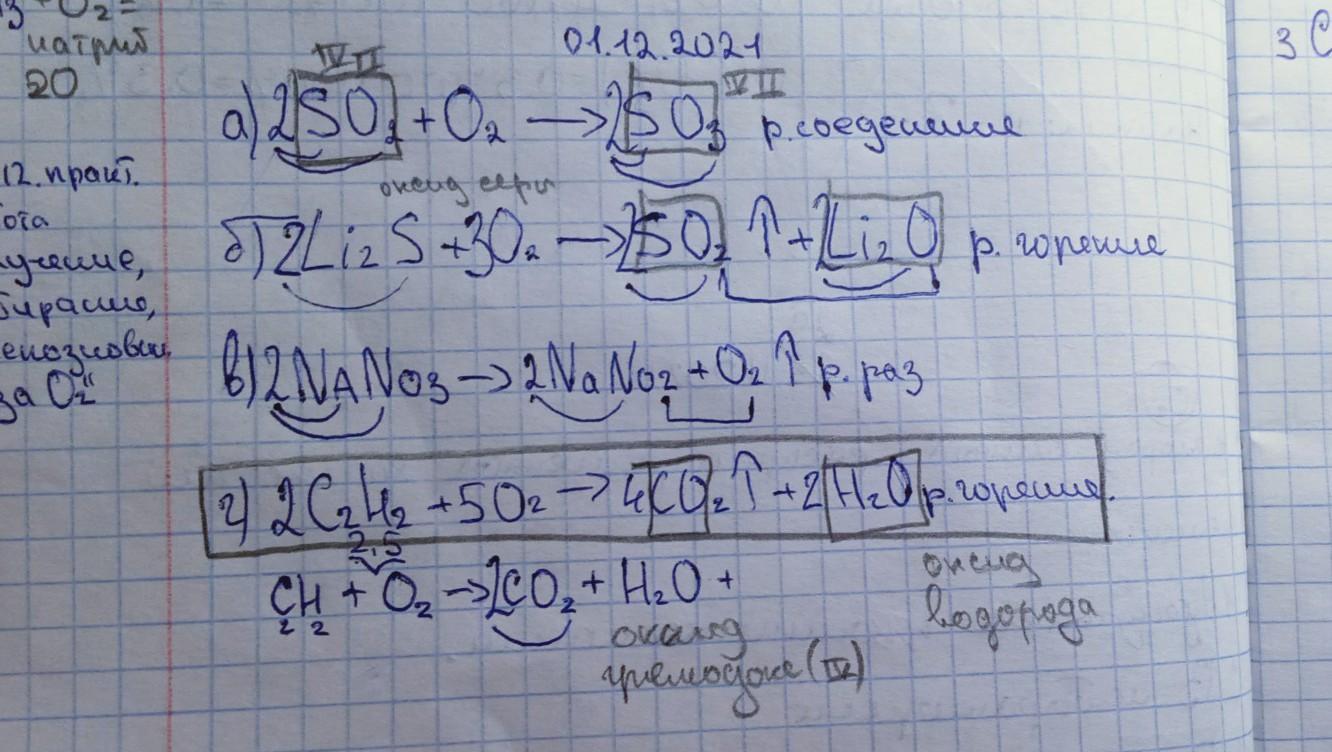 O₂ =
натрия
20
12. практ.
ота
лучение,
бирание,
за O₂"
01.12.2021
IV II
VI II
а) 2SO₂ + O₂ → 2SO₃ р. соеденение
оксид серы
б) 2Li₂S + 3O₂ → 2SO₂ ↑ + 2Li₂O р. горение
в) 2NANO3 → 2NaNO2 + O₂ ↑ р. раз
г) 2C₂H₂ + 5O₂ → 4CO₂ ↑ + 2H₂O р. горение.
2,5
C₂H₂ + O₂ → 2CO₂ + H₂O +
оксид
водорода
оксид
(IV)
3 C